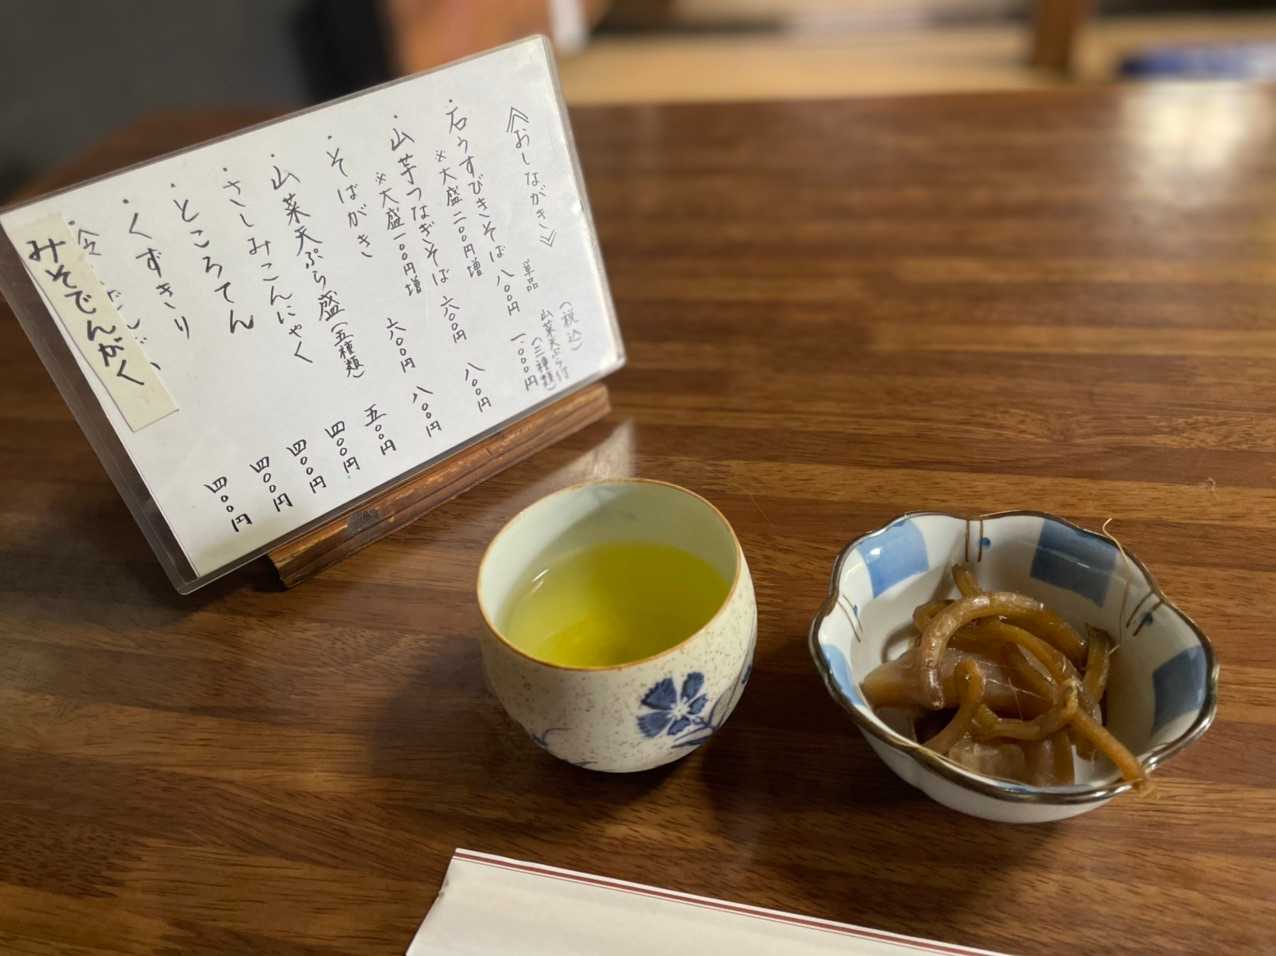 《おしながき》
(税込)
単品
山菜天ぷら付
(三種類)
・石うすびきそば 八〇〇円 一〇〇〇円
※大盛二〇〇円増
・山芋つなぎそば 六〇〇円 八〇〇円
※大盛一〇〇円増
・そばがき 六〇〇円 八〇〇円
・山菜天ぷら盛(五種類) 五〇〇円
・さしみこんにゃく 四〇〇円
・ところてん 四〇〇円
・くずきり 四〇〇円
みそでんがく 四〇〇円